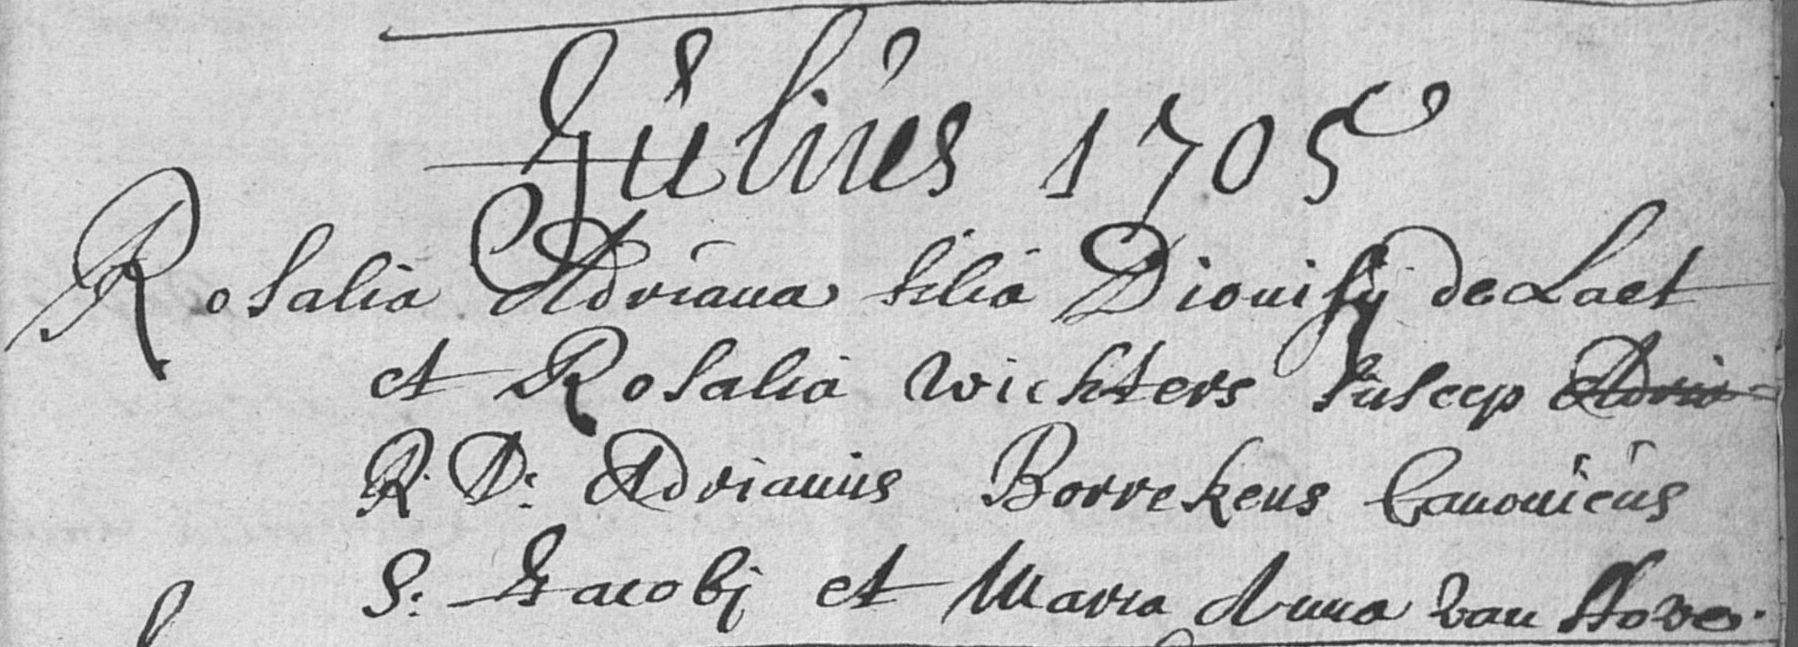 Julius 1705
Rosalia Adriana filia Dionisij de Laet
et Rosalia Wichters suscep Adria
R. D: Adrianus Borrekens Canonicus
S: Jacobj et Maria Anna van Hove.